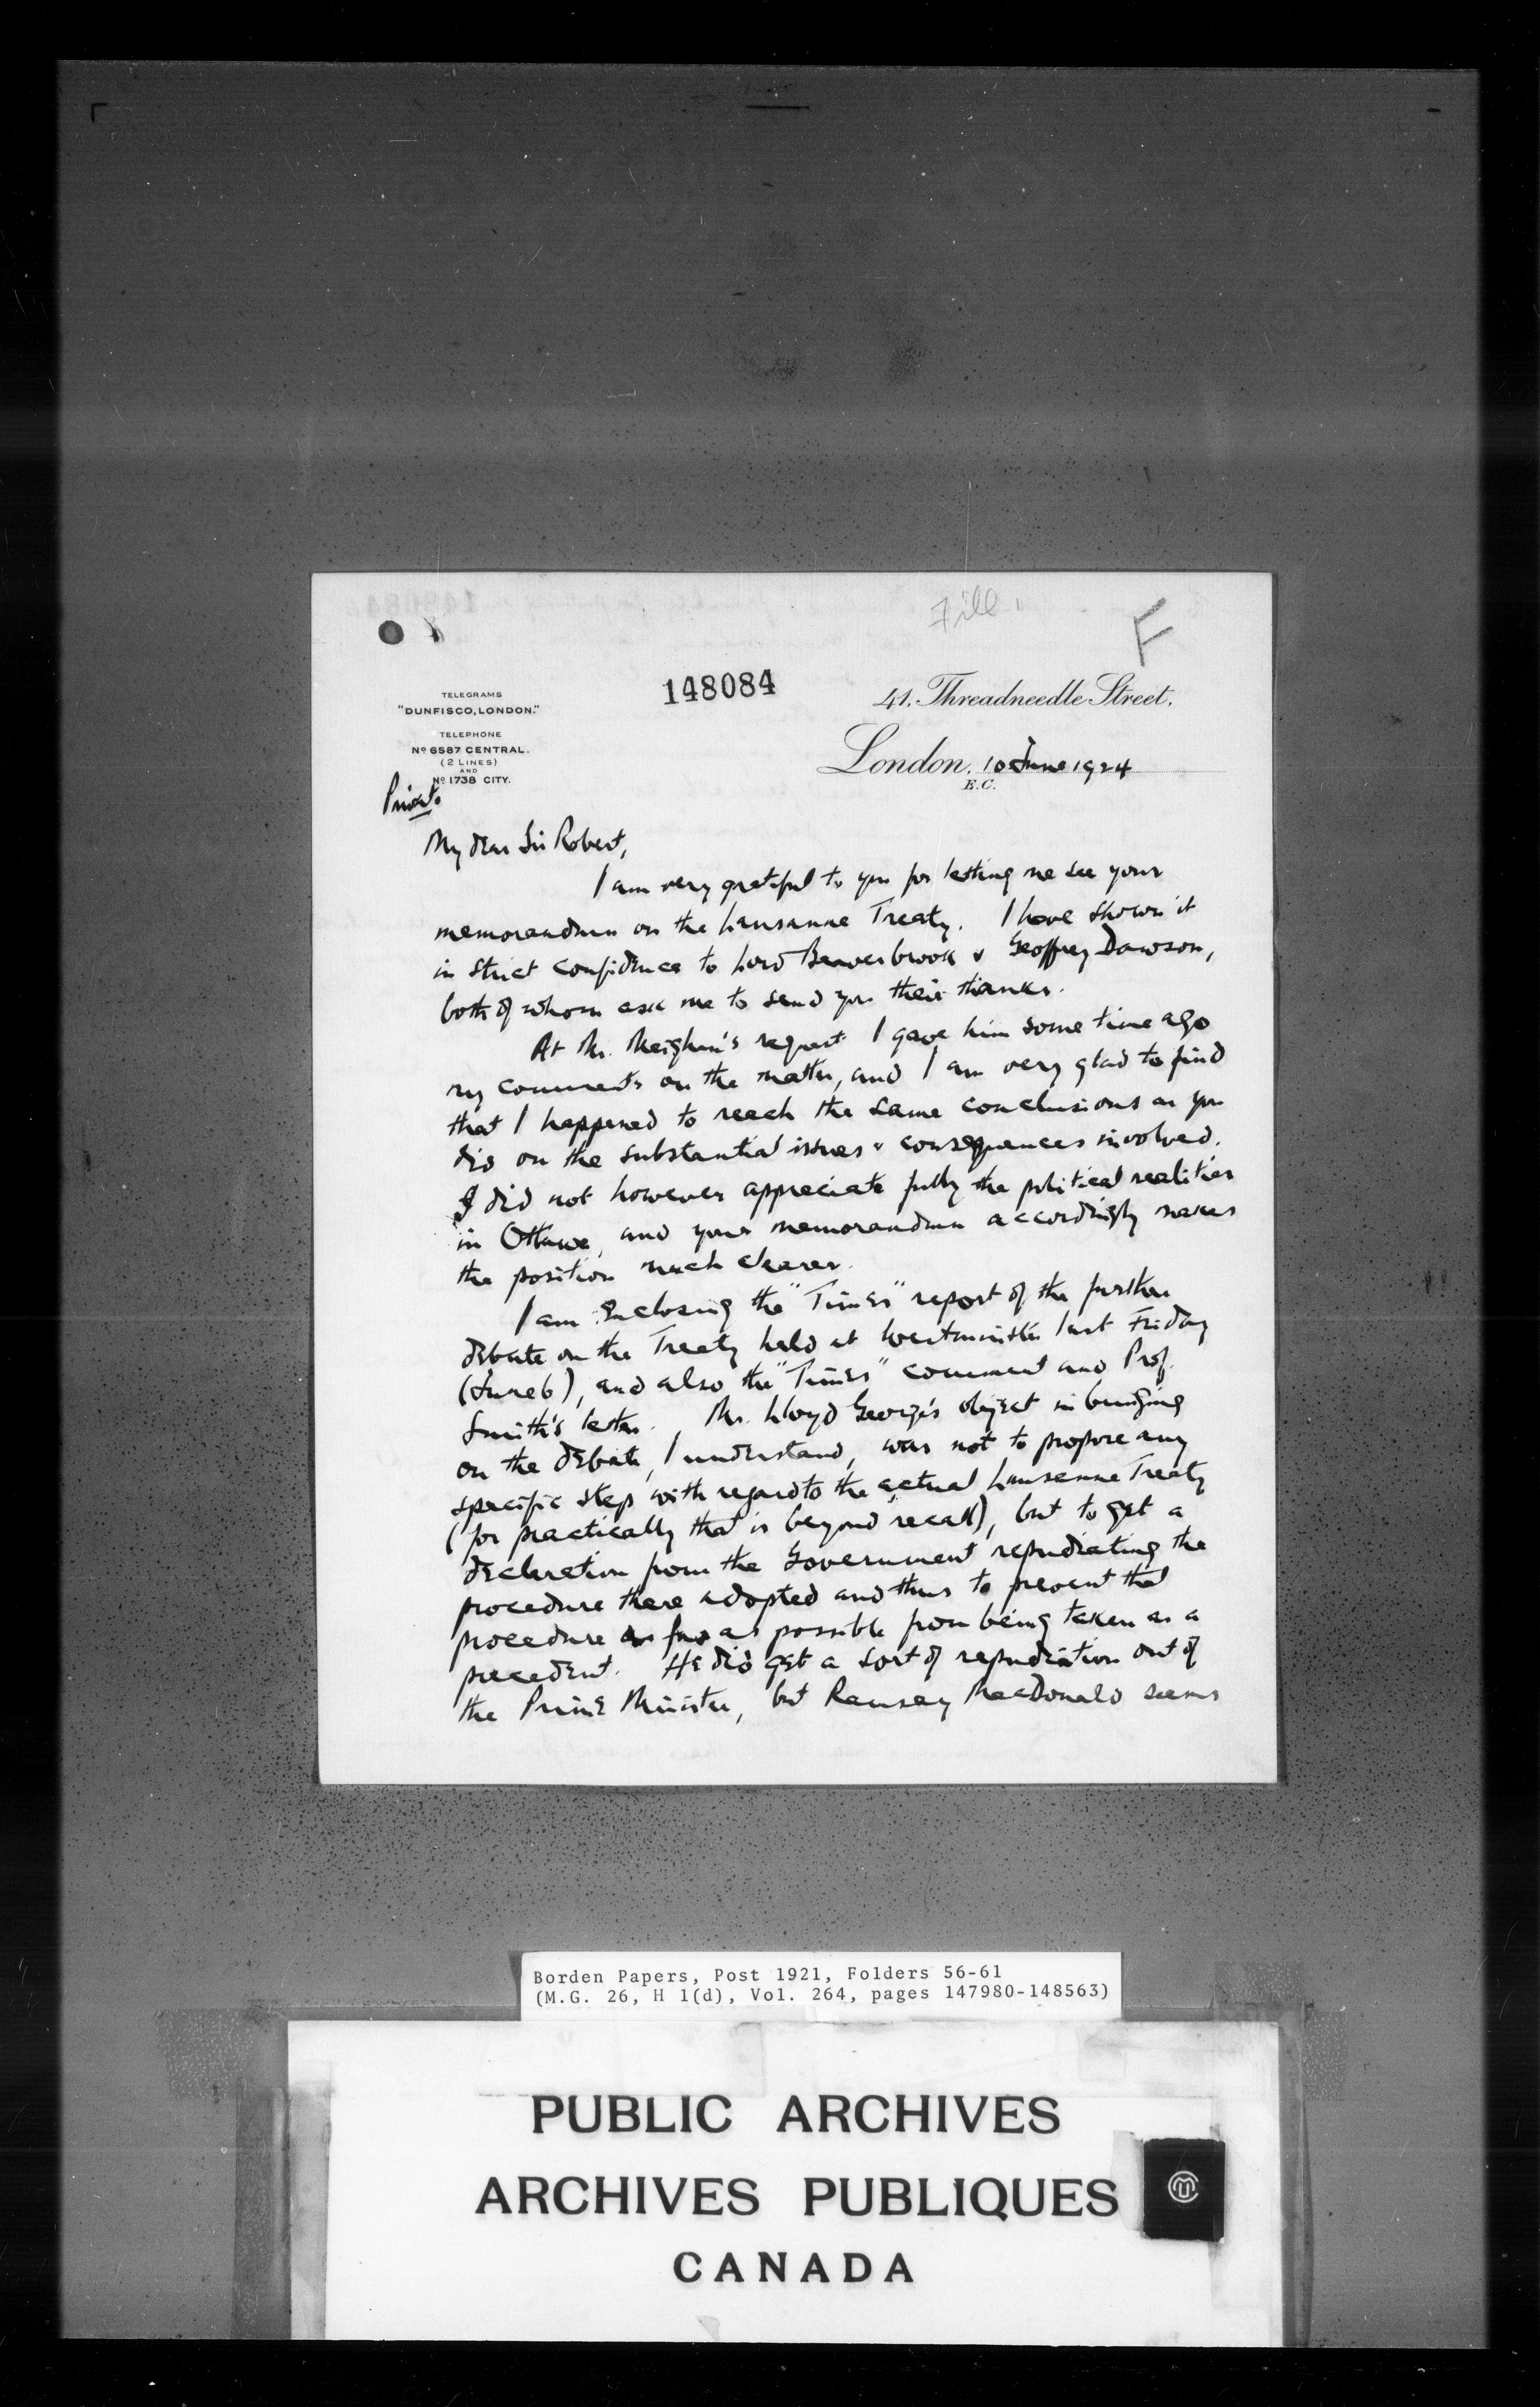 File
F
148084
TELEGRAMS
"DUNFISCO, LONDON."
TELEPHONE
No 6587 CENTRAL.
(2 LINES)
AND
No 1738 CITY.
41, Threadneedle Street,
London, 10 June 1924
E.C.
Private
My dear Sir Robert,
I am very grateful to you for letting me see your
memorandum on the Lausanne Treaty. I have shown it
in strict confidence to Lord Beaverbrook & Geoffrey Dawson,
both of whom ask me to send you their thanks.
At Mr. Meighen's request I gave him some time ago
my comments on the matter, and I am very glad to find
that I happened to reach the same conclusions as you
did on the substantial issues & consequences involved.
I did not however appreciate fully the political realities
in Ottawa, and your memorandum accordingly makes
the position much clearer.
I am enclosing the "Times" report of the further
debate on the Treaty held at Westminster last Friday
(June 6), and also the "Times" comment and Prof.
Smith's letter. Mr. Lloyd George's object in bringing
on the debate, I understand, was not to propose any
specific step with regard to the actual Lausanne Treaty
(for practically that is beyond recall), but to get a
declaration from the Government repudiating the
procedure there adopted and thus to prevent that
procedure as far as possible from being taken as a
precedent. He did get a sort of repudiation out of
the Prime Minister, but Ramsay MacDonald seems
Borden Papers, Post 1921, Folders 56-61
(M.G. 26, H 1(d), Vol. 264, pages 147980-148563)
PUBLIC ARCHIVES
ARCHIVES PUBLIQUES
CANADA